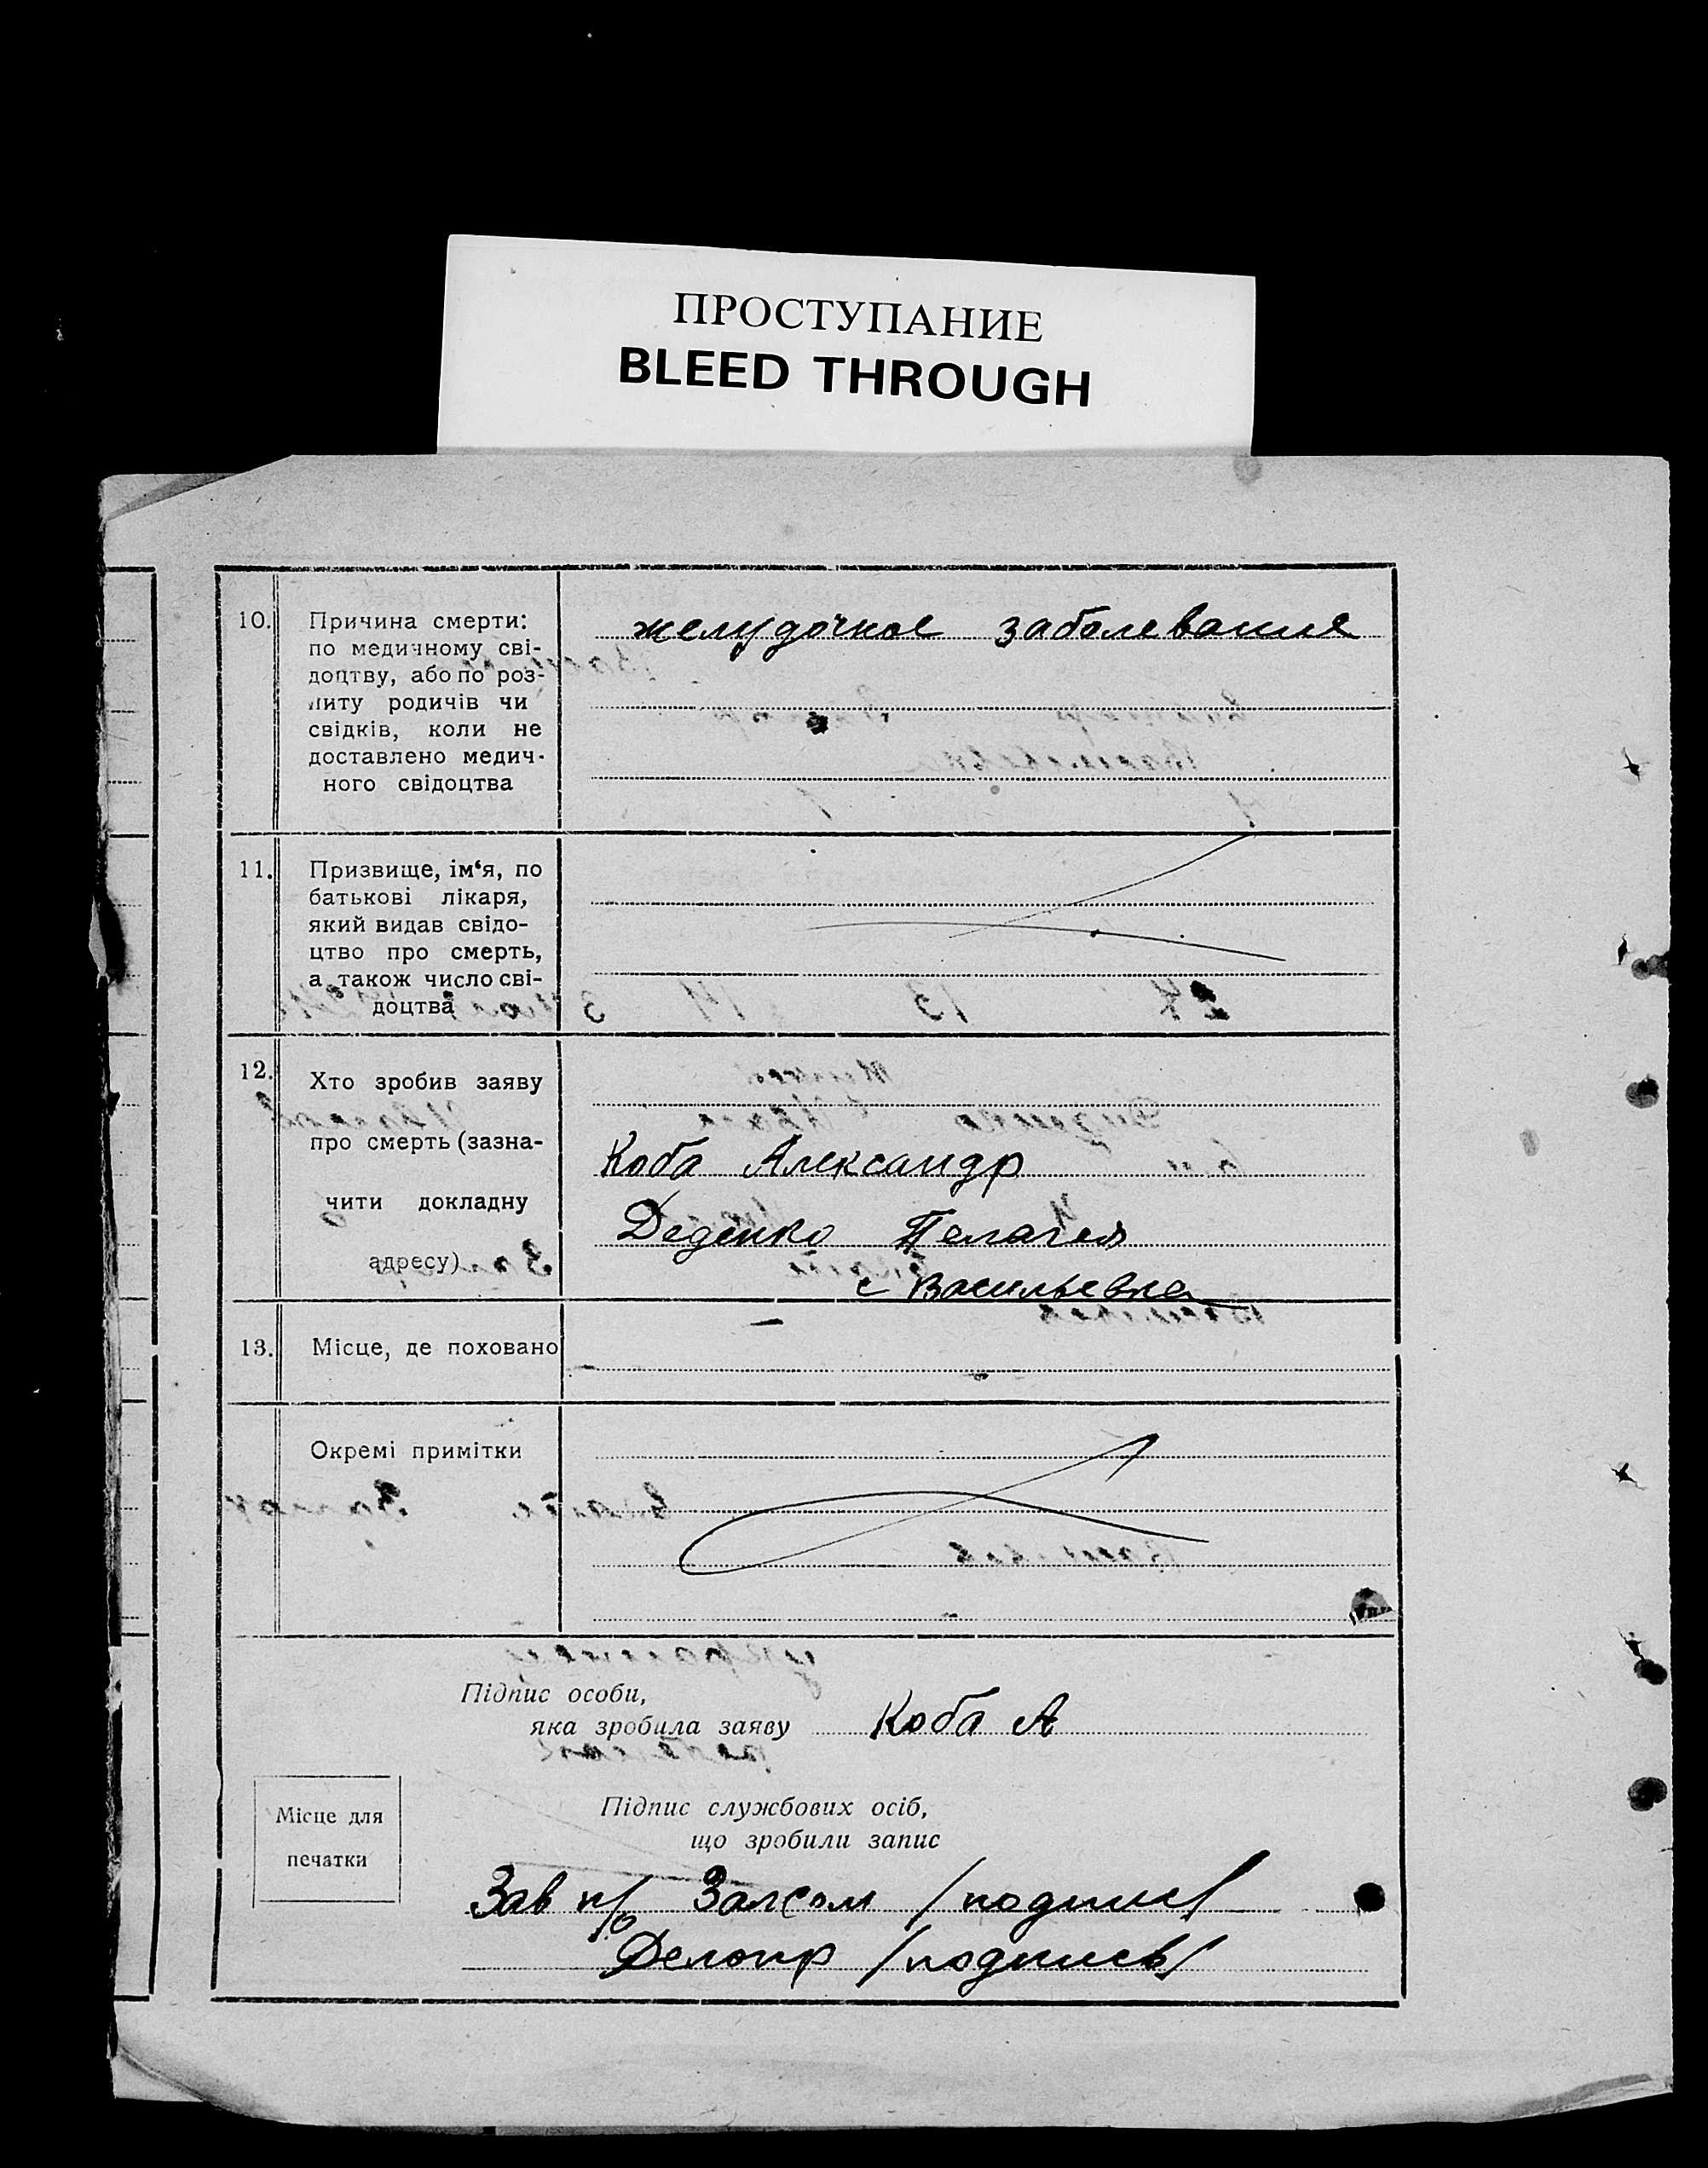 ПРОСТУПАНИЕ
BLEED THROUGH
10. Причина смерти:
по медичному сві-
доцтву, або по роз-
питу родичів чи
свідків, коли не
доставлено медич-
ного свідоцтва
желудочное заболевание
11. Призвище, ім‘я, по
батькові лікаря,
який видав свідо-
цтво про смерть,
а також число сві-
доцтва
12. Хто зробив заяву
про смерть (зазна-
чити докладну
адресу)
Коба Александр
Деденко Пелагея
с Васильевка
13. Місце, де поховано
—
Окремі примітки
Підпис особи,
яка зробила заяву Коба А
Місце для
печатки
Підпис службових осіб,
що зробили запис
Зав п/о Залсом /подпись/
Делопр /подпись/